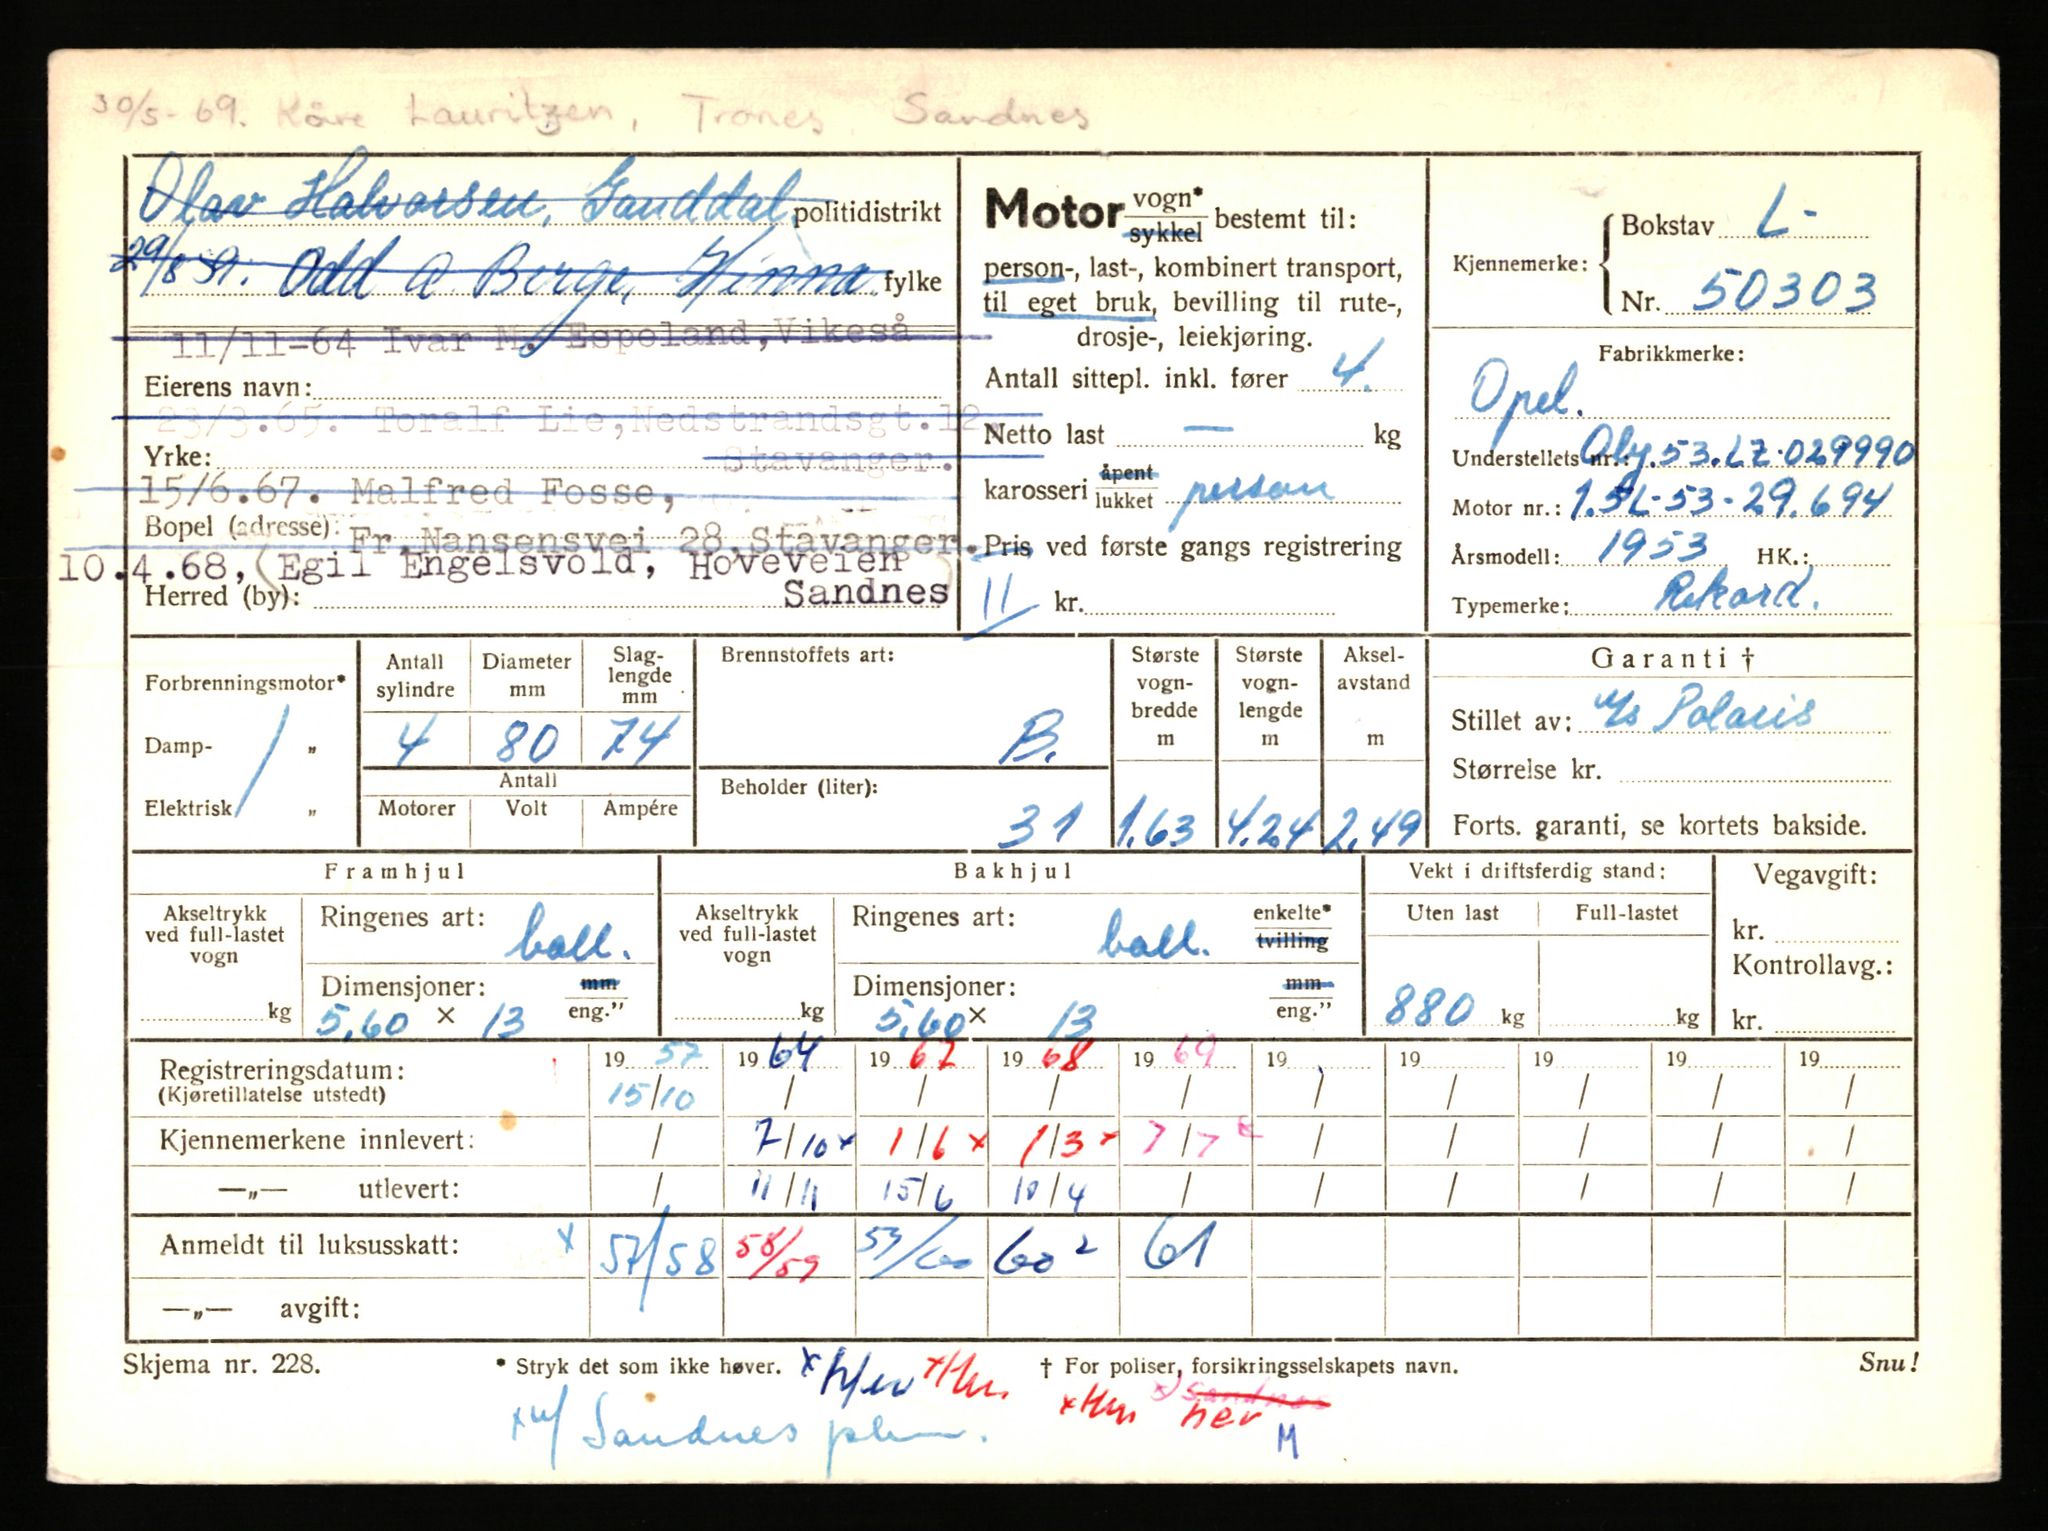 30/5-69. Kåre Lauritzen, Trones, Sandnes
Olav Halvorsen, Ganddal politidistrikt
29/8 59. Odd A Berge, Hinna fylke
11/11-64 Ivar M. Espeland, Vikeså
Eierens navn:
23/3.65. Toralf Lie, Nedstrandsgt. 12.
Yrke: Stavanger.
15/6.67. Malfred Fosse,
Bopel (adresse): Fr. Nansensvei 28, Stavanger.
10.4.68, (Egil Engelsvold, Hoveveien)
Herred (by): Sandnes
Motor vogn* sykkel bestemt til:
person-, last-, kombinert transport,
til eget bruk, bevilling til rute-,
drosje-, leiekjøring.
Antall sittepl. inkl. fører 4.
Netto last — kg
karosseri åpent lukket person
Pris ved første gangs registrering
II kr.
Kjennemerke: Bokstav L-
Nr. 50303
Fabrikkmerke:
Opel.
Understellets nr.: Oly.53.LZ.029990
Motor nr.: 1.5L-53-29.694
Årsmodell: 1953 HK.:
Typemerke: Rekord.
Forbrenningsmotor*
Damp- „
Elektrisk „
Antall sylindre Diameter mm Slaglengde mm
4 80 74
Antall
Motorer Volt Ampére
Brennstoffets art:
B.
Beholder (liter):
31
Største vognbredde m
1.63
Største vognlengde m
4.24
Akselavstand m
2.49
Garanti †
Stillet av: Polaris
Størrelse kr.
Forts. garanti, se kortets bakside.
Framhjul
Akseltrykk ved full-lastet vogn
kg
Ringenes art: ball.
Dimensjoner: mm
5,60 × 13 eng.”
Bakhjul
Akseltrykk ved full-lastet vogn
kg
Ringenes art: ball. enkelte* tvilling
Dimensjoner: mm
5,60 × 13 eng.”
Vekt i driftsferdig stand:
Uten last Full-lastet
880 kg kg
Vegavgift:
kr.
Kontrollavg.:
kr.
Registreringsdatum: 1957 1964 1967 1968 1969 19 19 19 19 19
(Kjøretillatelse utstedt) 15/10 / / / / / / / / /
Kjennemerkene innlevert: / 7/10x 1/6x 1/3x 7/7x / / / / /
—„— utlevert: / 11/11 15/6 10/4 / / / / / /
Anmeldt til luksusskatt: x 57/58 58/59 60² 61
—„— avgift:
Skjema nr. 228. * Stryk det som ikke høver. † For poliser, forsikringsselskapets navn. Snu!
x) Sandnes
her
Sandnes
M